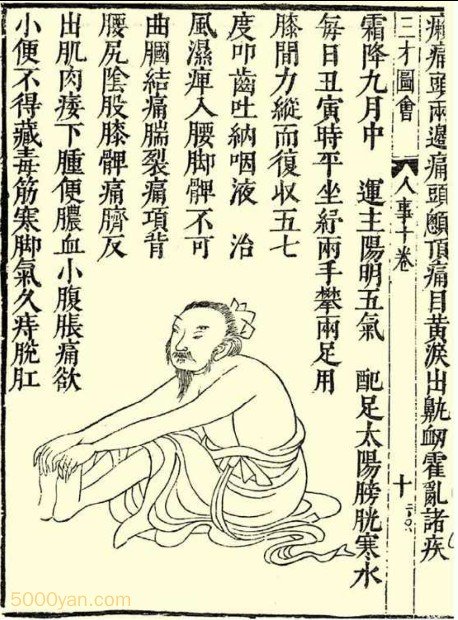 癲痛頭兩邊痛頭顖頂痛目黃淚出鼽衄霍亂諸疾
三才圖會 人事十卷 十
霜降九月中 運主陽明五氣 配足太陽膀胱寒水
每日丑寅時平坐紓兩手攀兩足用
膝間力縱而復収五七
度叩齒吐納咽液 治
風濕痺入腰脚髀不可
曲膕結痛腨裂痛項背
腰尻陰股膝髀痛臍反
出肌肉痿下腫便膿血小腹脹痛欲
小便不得藏毒筋寒脚氣久痔脫肛
5000yan.com